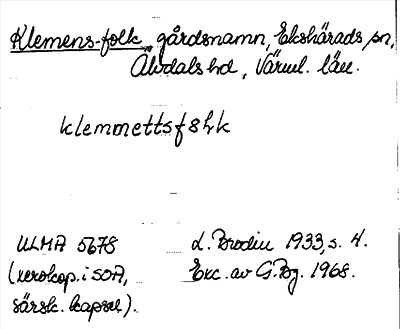 Klemens-folk, gårdsnamn, Ekshärads sn,
Älvdals hd, Värml. län.
klemmettsfålk
ULMA 5678
(xerokop. i SOA,
särsk. kapsel).
L. Brodin 1933, s. 4.
Exc. av G. Bg. 1968.